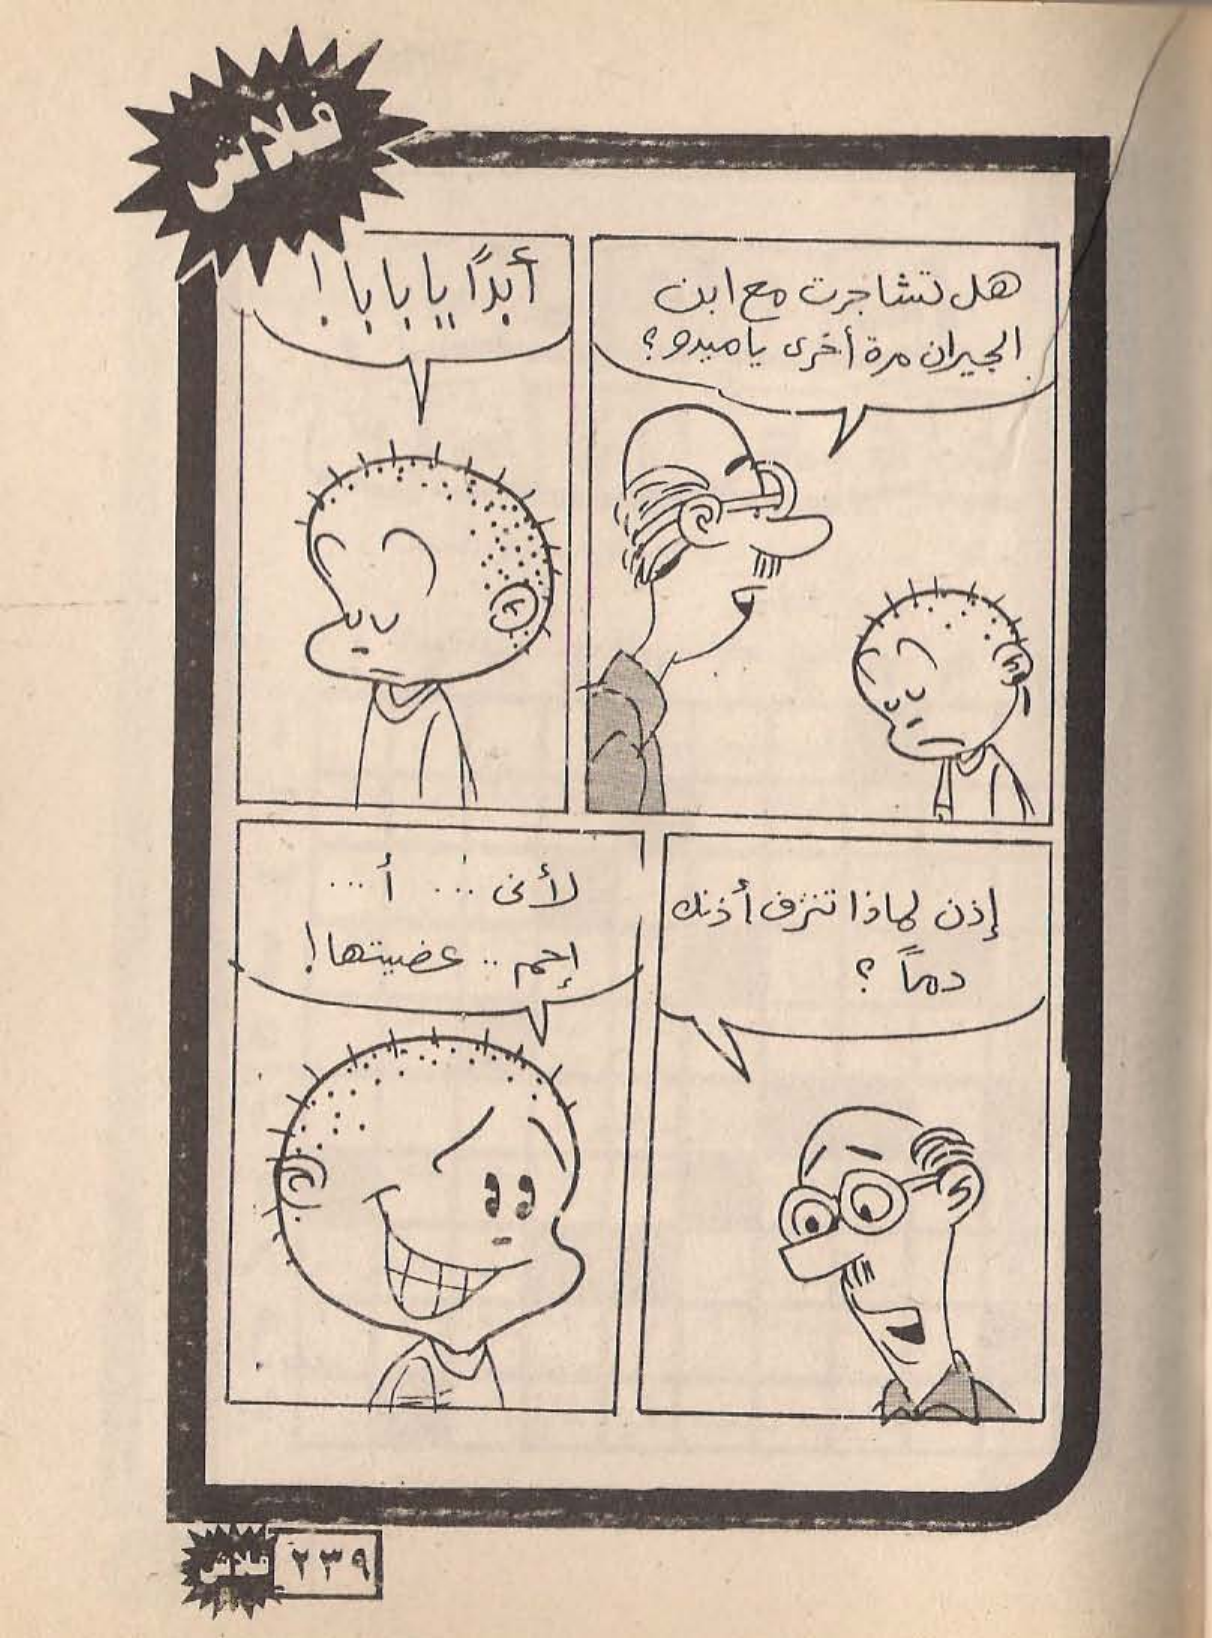 فلاش
هل تشاجرت مع ابن
الجيران مرة أخرى ياميدو؟
أبدًا يا بابا!
إذن لماذا تنزف أذنك
دماً ؟
لأنى ... أ...
إحم .. عضيتها!
فلاش ٢٣٩